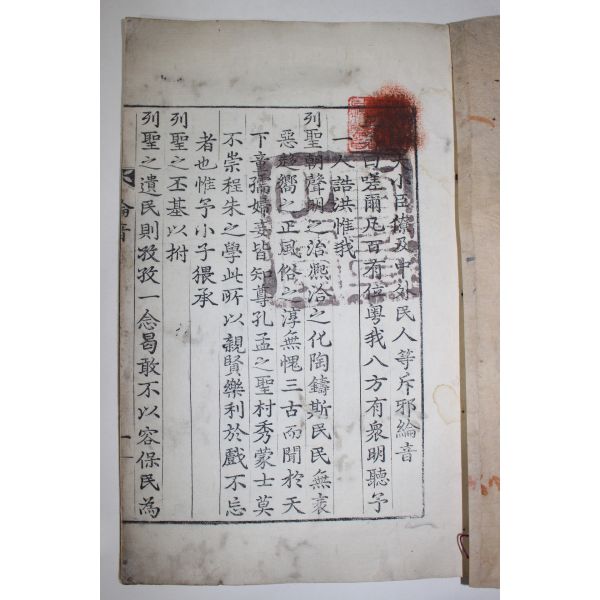 大小臣僚及中外民人等斥邪綸音
曰嗟爾凡百有位粤我八方有衆明聽予
一人誥洪惟我
列聖朝聲明之治熙洽之化陶鑄斯民民無衺
惡趍嚮之正風俗之淳無愧三古而聞於天
下童孺婦妾皆知尊孔孟之聖村秀蒙士莫
不崇程朱之學此所以親賢樂利於戲不忘
者也惟予小子猥承
列聖之丕基以拊
列聖之遺民則孜孜一念曷敢不以容保民為
綸音
一